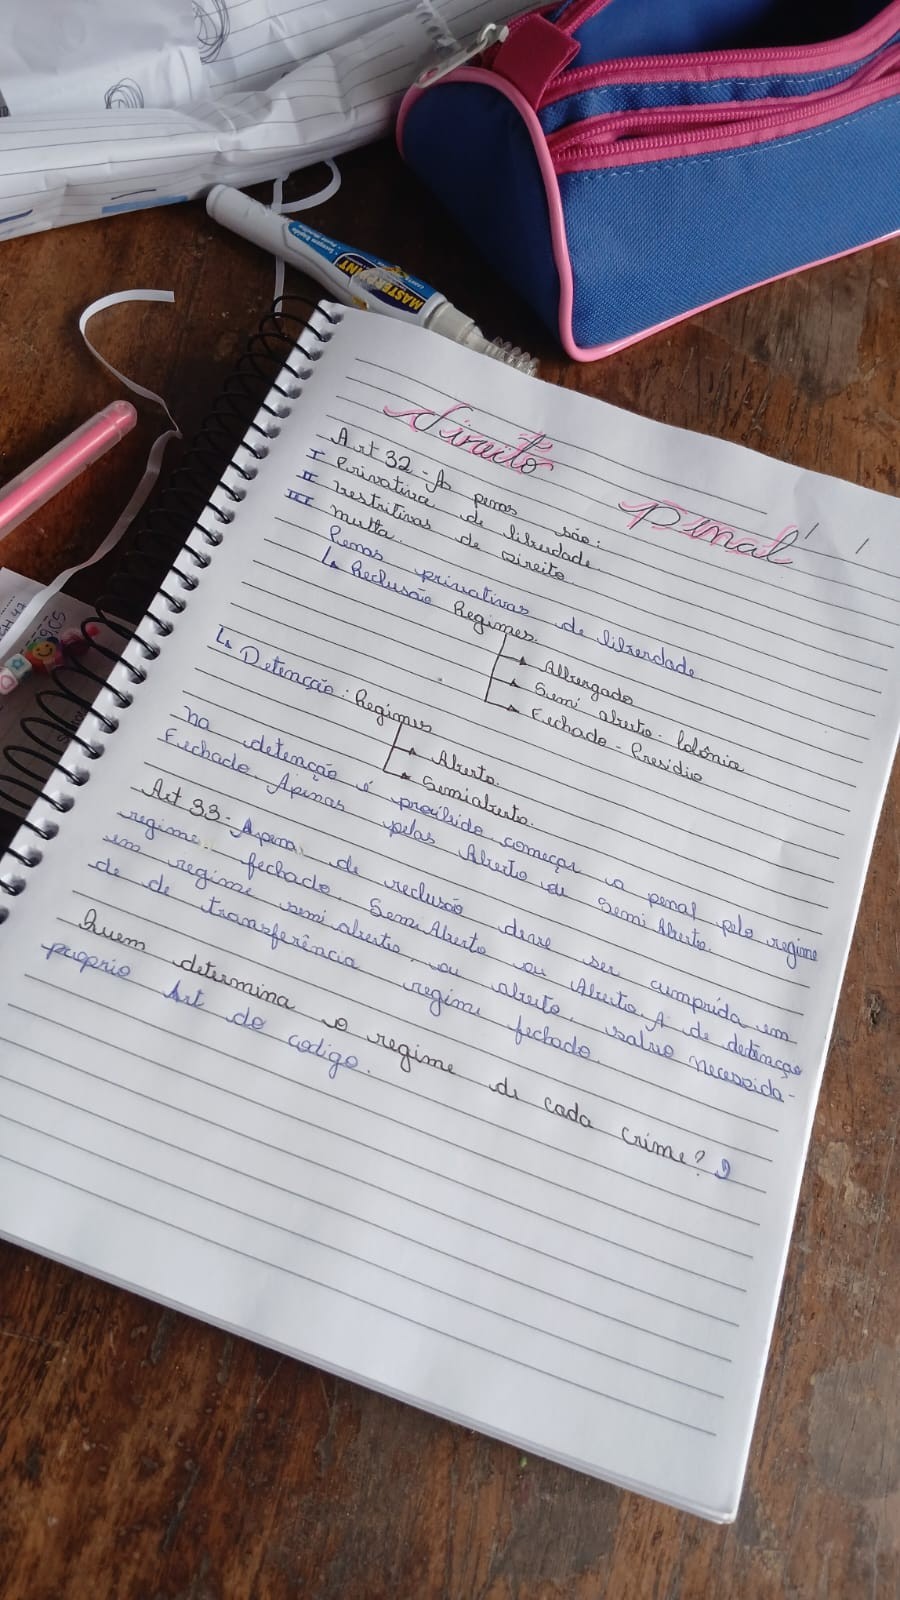 Direito Penal
Art 32 - As penas são:
I Privativa de liberdade
II restritivas de Direito
III multa.
Penas privativas de liberdade
↳ Reclusão Regimes.
Albergado
Semi aberto - Colônia
Fechado - Presidio
↳ Detenção: Regimes
Aberto.
Semiaberto.
Na detenção é proibido começar a penal pelo regime
Fechado. Apenas pelas Aberto ou Semi Aberto.
Art 33 - A pena de reclusão deve ser cumprida em
regime fechado, Semi Aberto ou Aberto. A de detenção
em regime semi aberto, ou aberto, salvo necessida-
de de transferência regime fechado.
Quem determina o regime de cada crime? O
proprio Art do codigo.
MASTERPRINT